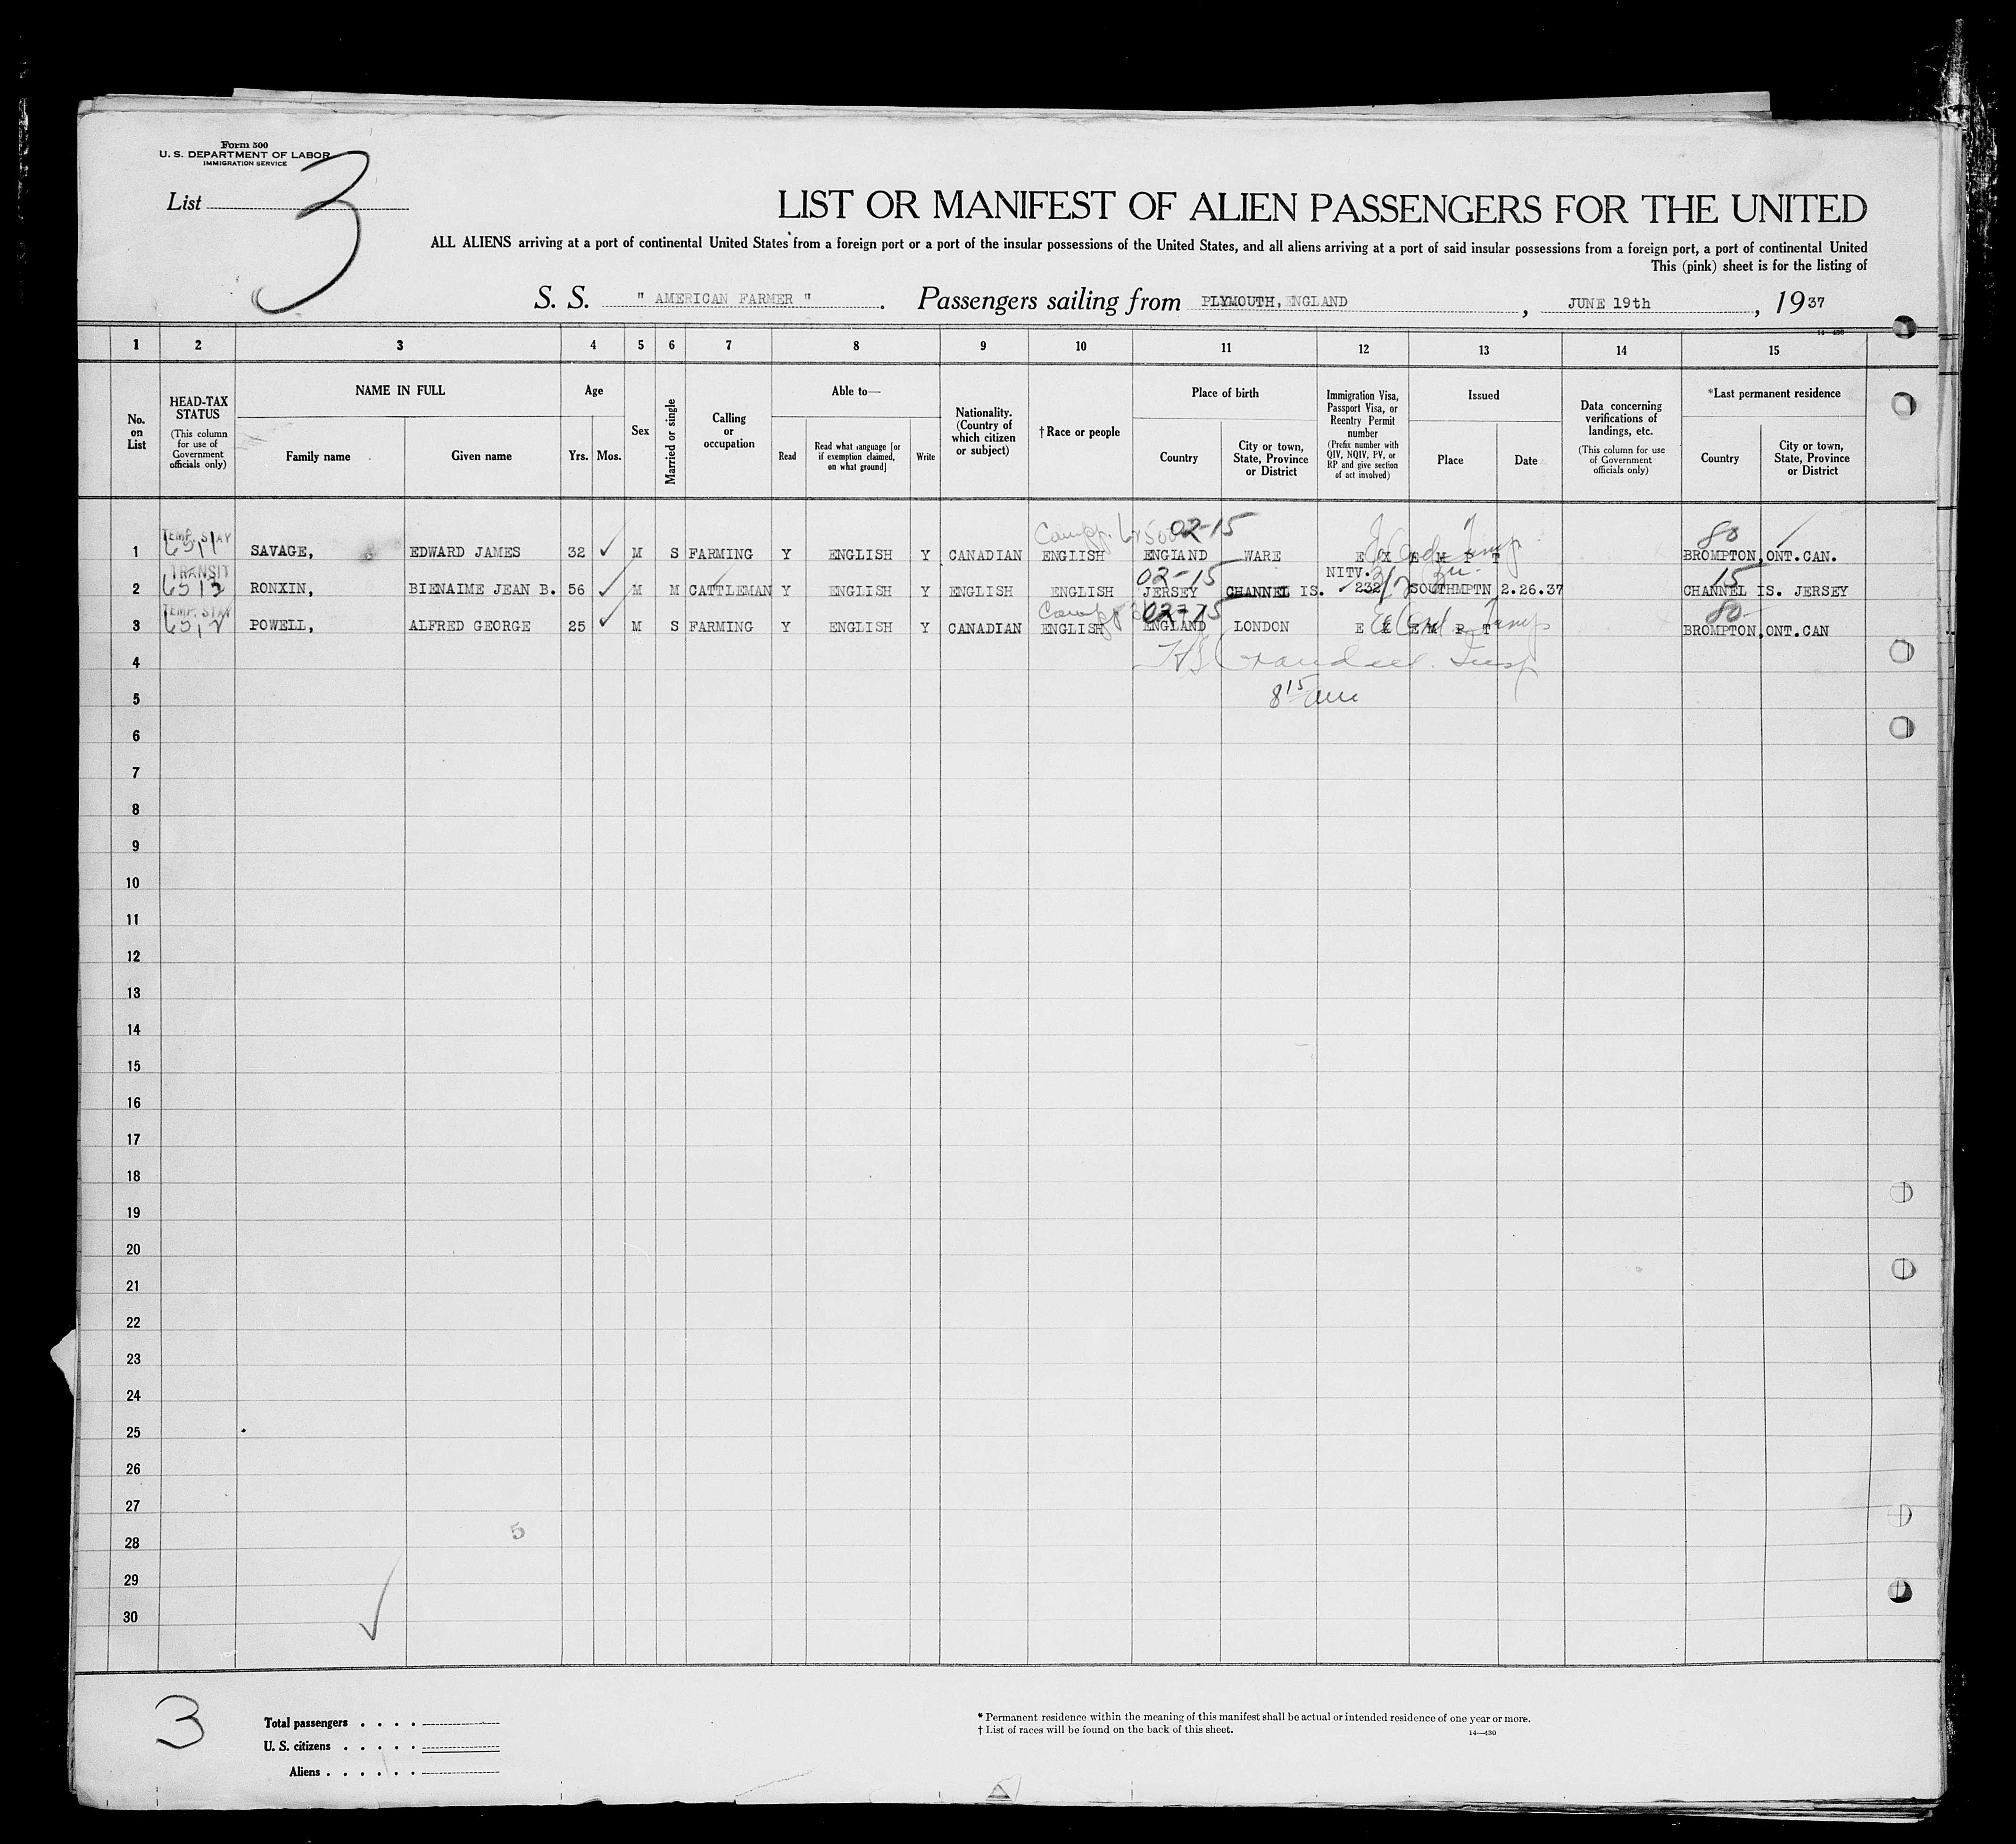 Form 500
U. S. DEPARTMENT OF LABOR
IMMIGRATION SERVICE
List 3
LIST OR MANIFEST OF ALIEN PASSENGERS FOR THE UNITED
ALL ALIENS arriving at a port of continental United States from a foreign port or a port of the insular possessions of the United States, and all aliens arriving at a port of said insular possessions from a foreign port, a port of continental United
This (pink) sheet is for the listing of
S. S. " AMERICAN FARMER " . Passengers sailing from PLYMOUTH, ENGLAND , JUNE 19th , 1937
14—430
1 2 3 4 5 6 7 8 9 10 11 12 13 14 15
No. on List
HEAD-TAX STATUS (This column for use of Government officials only)
NAME IN FULL
Family name
Given name
Age
Yrs.
Mos.
Sex
Married or single
Calling or occupation
Able to—
Read
Read what language [or if exemption claimed, on what ground]
Write
Nationality. (Country of which citizen or subject)
† Race or people
Place of birth
Country
City or town, State, Province or District
Immigration Visa, Passport Visa, or Reentry Permit number (Prefix number with QIV, NQIV, PV, or RP and give section of act involved)
Issued
Place
Date
Data concerning verifications of landings, etc. (This column for use of Government officials only)
*Last permanent residence
Country
City or town, State, Province or District
TEMP. STAY 02-15 80
1 SAVAGE, EDWARD JAMES 32 ✓ M S FARMING Y ENGLISH Y CANADIAN ENGLISH ENGLAND WARE E X E M P T BROMPTON, ONT. CAN.
TRANSIT 02-15 NITV. 15
2 RONXIN, BIENAIME JEAN B. 56 ✓ M M CATTLEMAN Y ENGLISH Y ENGLISH ENGLISH JERSEY CHANNEL IS. 232 SOUTHMPTN 2.26.37 CHANNEL IS. JERSEY
TEMP. STAY 02-15 80
3 POWELL, ALFRED GEORGE 25 ✓ M S FARMING Y ENGLISH Y CANADIAN ENGLISH ENGLAND LONDON E X E M P T BROMPTON, ONT. CAN
4
5 8 15 am
6
7
8
9
10
11
12
13
14
15
16
17
18
19
20
21
22
23
24
25
26
27
5
28
29
30
3
Total passengers . . . .
U. S. citizens . . . . .
Aliens . . . . . .
* Permanent residence within the meaning of this manifest shall be actual or intended residence of one year or more.
† List of races will be found on the back of this sheet.
14—430